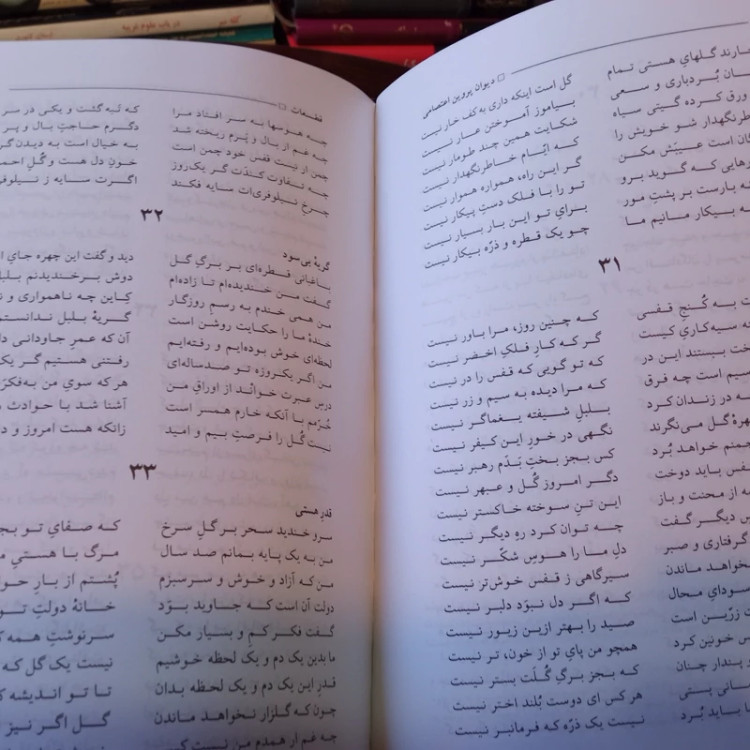 دیوان پروین اعتصامی
گل است اینکه داری به کف خار نیست
عارند گلهای هستی تمام
بیاموز آموختن عار نیست
ان پُردباری و سعی
شکایت همین چند طومار نیست
ورق کرده گیتی سیاه
که ایّام خاطرنگهدار نیست
طرنگهدار شو خویش را
گر این راه، همواره هموار نیست
ان است عیبش مکن
تو را با فلک دستِ پیکار نیست
هایی که گوید برو
برای تو این بار بسیار نیست
ه بارست بر پشتِ مور
چو یک قطره و ذرّه بیکار نیست
ه بیکار مانیم ما
۳۱
ت به کُنجِ قفسی
که چنین روز، مرا باور نیست
سیه‌کاری کیست
گر که کارِ فلکِ اخضر نیست
خت ببستند این در
که تو گویی که قفس را در نیست
سیم است چه فرق
که مرا دیده به سیم و زر نیست
ه در زندان کرد
بلبلِ شیفته یغماگر نیست
هرهٔ گل می‌نگرند
نگهی در خورِ این کیفر نیست
منم خواهد بُرد
کس بجز بختِ بَدَم رهبر نیست
فس باید دوخت
دگر امروز گُل و عبهر نیست
ه از محنت و باز
این تنِ سوخته خاکستر نیست
ی دیگر گفت
چه توان کرد رهِ دیگر نیست
گرفتاری و صبر
دلِ ما را هوسِ شکّر نیست
نخواهد ماندن
سیرگاهی ز قفس خوش‌تر نیست
سودایِ محال
که اگر دل نبوَد دلبر نیست
زرّین است
صید را بهتر ازین زیور نیست
خونین کرد
همچو من پایِ تو از خون، تر نیست
پندار چنان
که بجز برگِ گُلَت بستر نیست
انی بتی
هر کس ای دوست بُلند اختر نیست
باید بُرد
نیست یک ذرّه که فرمانبر نیست
قطعات
چه هوسها به سر افتاد مرا
که تَبه گشت و یکی در سر
چه غم از بال و پَرم ریخته شد
دگرم حاجتِ بال و پر
چمن ار نیست قفس خود چمن است
به خیال است به دیدن گر
چه تفاوت کندت گر یک‌روز
خونِ دل هست و گُلِ احم
چرخ نیلوفری‌ات سایه فکند
اگرت سایه ز نیلوف
۳۲
گریهٔ بی‌سود
باغبانی قطره‌ای بر برگِ گل
دید و گفت این چهره جای ا
گفت من خندیده‌ام تا زاده‌ام
دوش برخندیدنم بلبل
من همی خندم به رسمِ روزگار
کاین چه ناهمواری و ن
خندهٔ ما را حکایت روشن است
گریهٔ بلبل ندانستم
لحظه‌ای خوش بوده‌ایم و رفته‌ایم
آن که عمرِ جاودانی د
من اگر یکروزه تو صدساله‌ای
رفتنی هستیم گر یک
درسِ عبرت خوانْد از اوراقِ من
هر که سوی من به‌فکر
خُرّمم با آنکه خارم همسر است
آشنا شد با حوادث
نیست گُل را فرصتِ بیم و امید
زانکه هست امروز و د
۳۳
قدرِ هستی
سرو خندید سحر بر گلِ سرخ
که صفای تو بجز
من به یک پایه بمانم صد سال
مرگ با هستیِ من
من که آزاد و خوش و سرسبزم
پُشتم از بارِ حوا
دولت آن است که جاوید بوَد
خانهٔ دولتِ تو
گفت فکرِ کم و بسیار مکن
سرنوشتِ همه ک
ما بدین یک دم و یک لحظه خوشیم
نیست یک گل که
قدرِ این یک دم و یک لحظه بدان
تا تو اندیشه ک
چون که گلزار نخواهد ماندن
گل اگر نیز
چه غم ار همدمِ من نیست کس